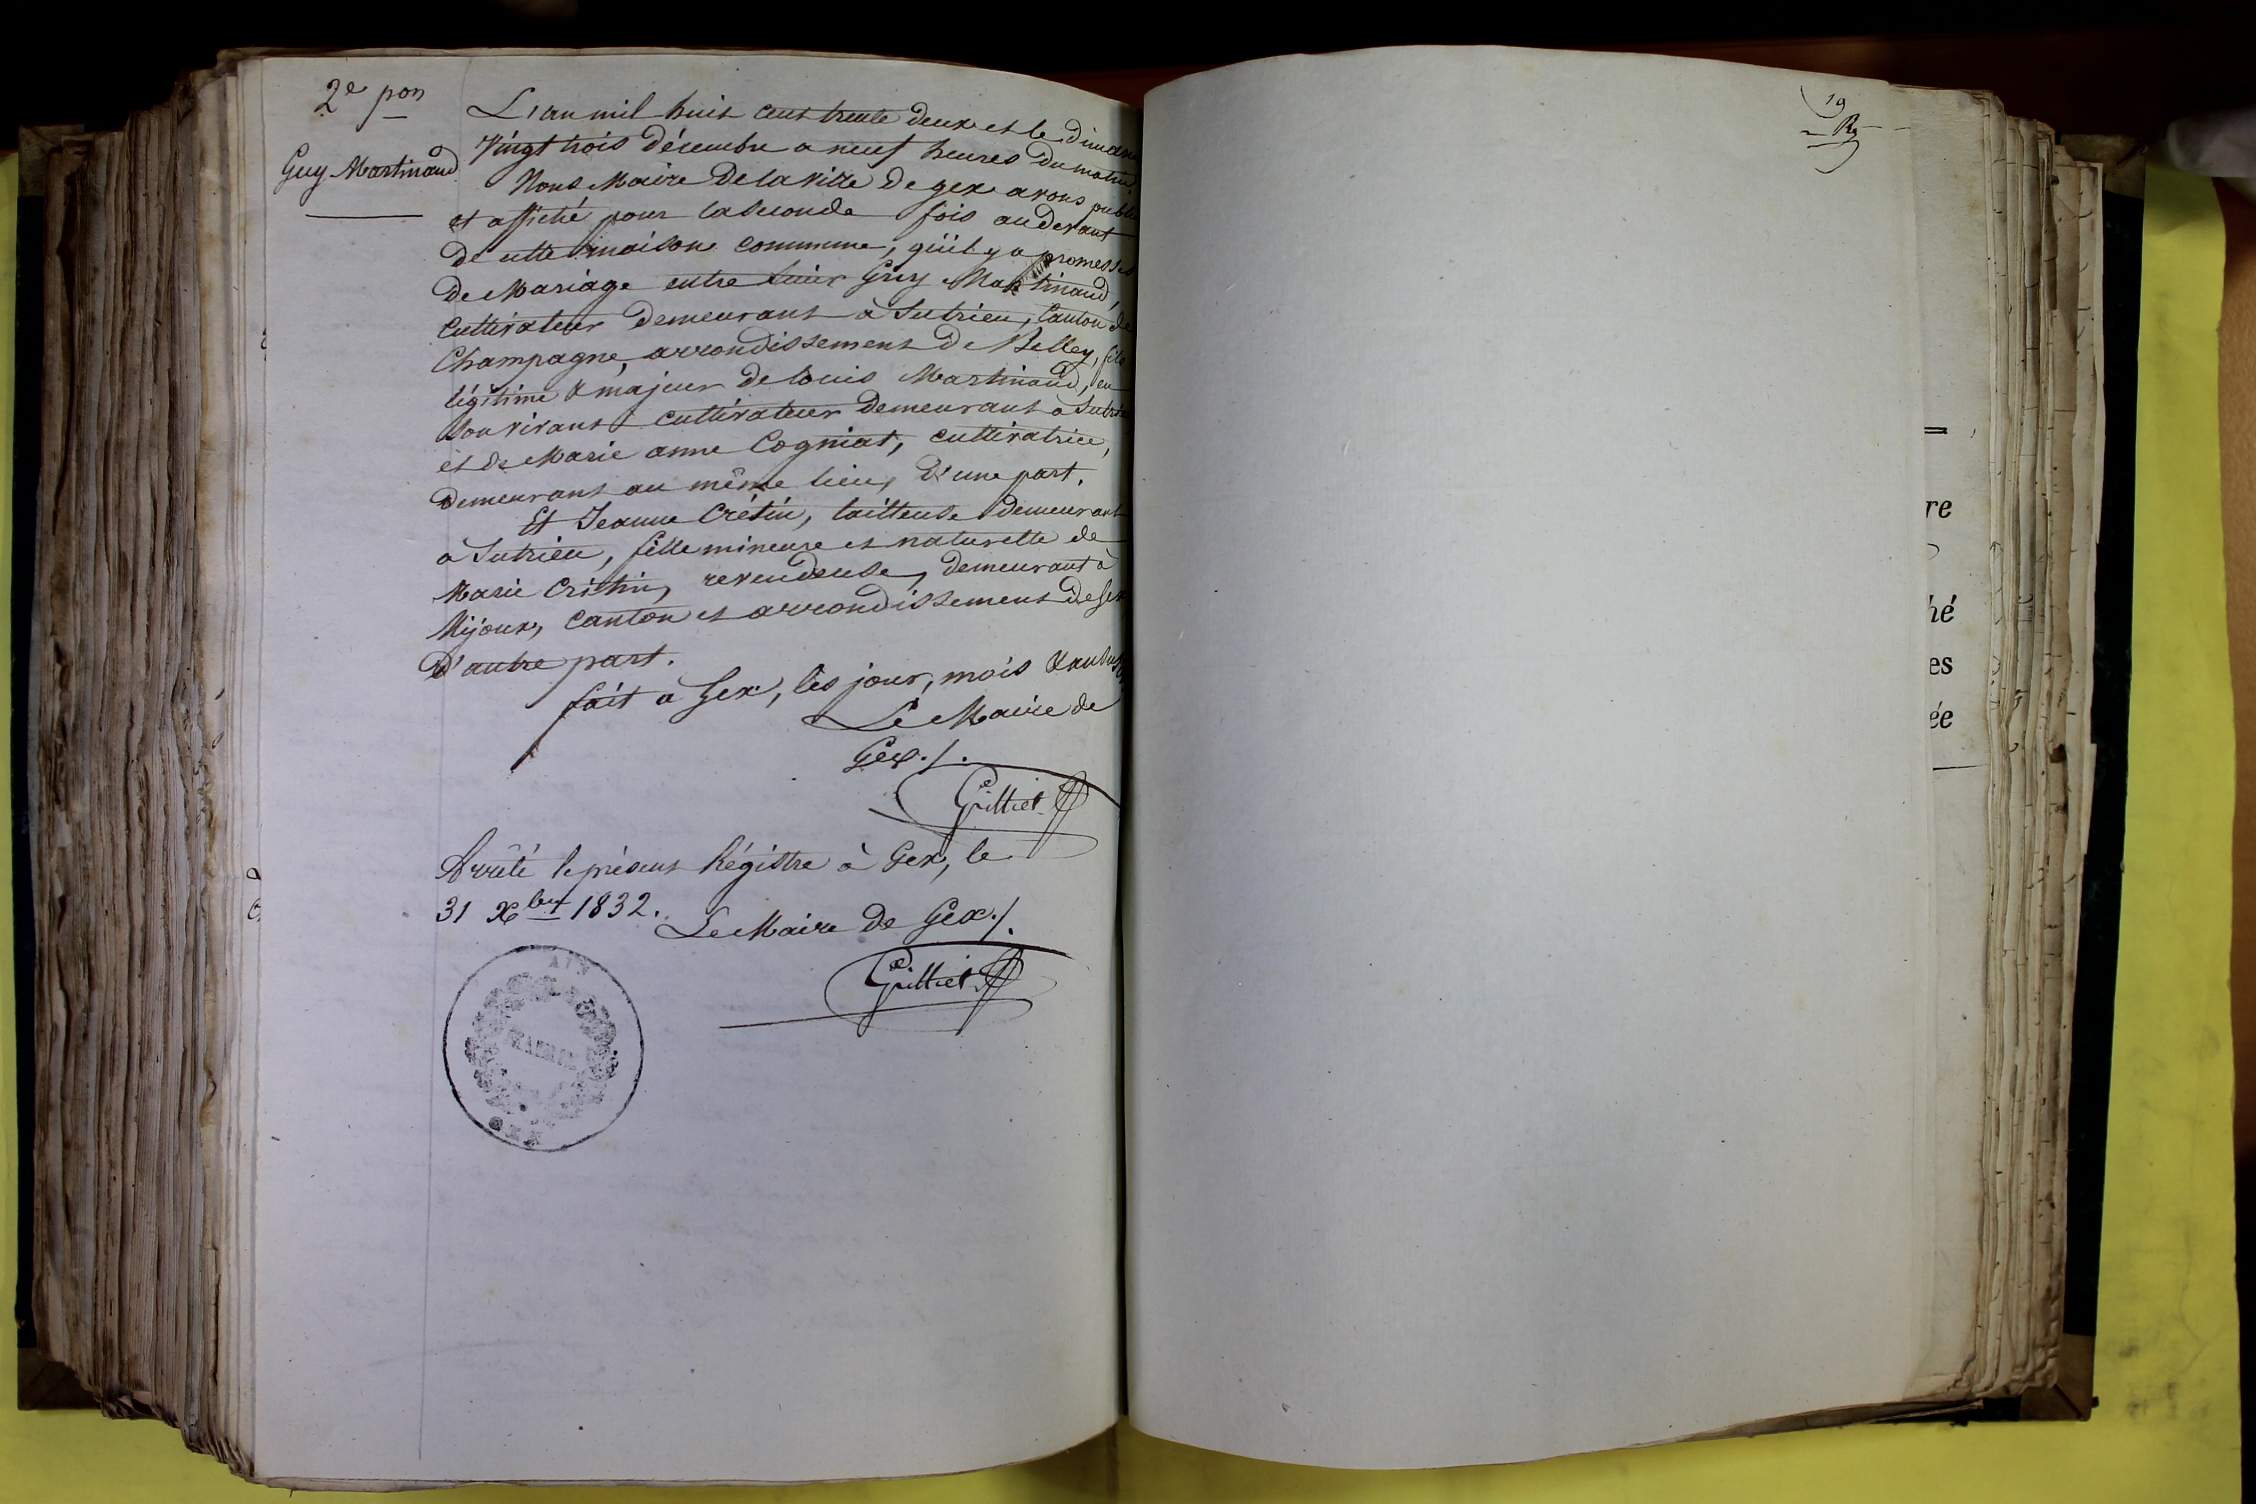 2e pon
Guy Martinaud
L'an mil huit cent trente deux et le diman
Vingt trois décembre a neuf heures du matin
Nous Maire de la ville de gex avons publié
et affiché pour la seconde fois au devant
de cette maison commune, qu'il y a promesses
de Mariage entre Guy Martinaud,
Cultivateur demeurant à Sutrieu, Canton de
Champagne, arrondissement de Belley, fils
légitime & majeur de Louis Martinaud, en
son vivant cultivateur demeurant à Sutrieu
et de Marie anne Cogniat, cultivatrice,
demeurant au même lieu, d'une part.
Et Jeanne Crétin, tailleuse demeurant
à Sutrieu, fille mineure et naturelle de
Marie Crétin, revendeuse, demeurant à
Mijoux, Canton et arrondissement de Gex
d'autre part.
fait à Gex, les jour, mois & an
Le Maire de
Gex./.
Grilliet
Arrêté le présent Régistre à Gex, le
31 Xbre 1832.
Le Maire de Gex./.
Grilliet
AIN
MAIRIE
GEX
19
re
hé
es
ée